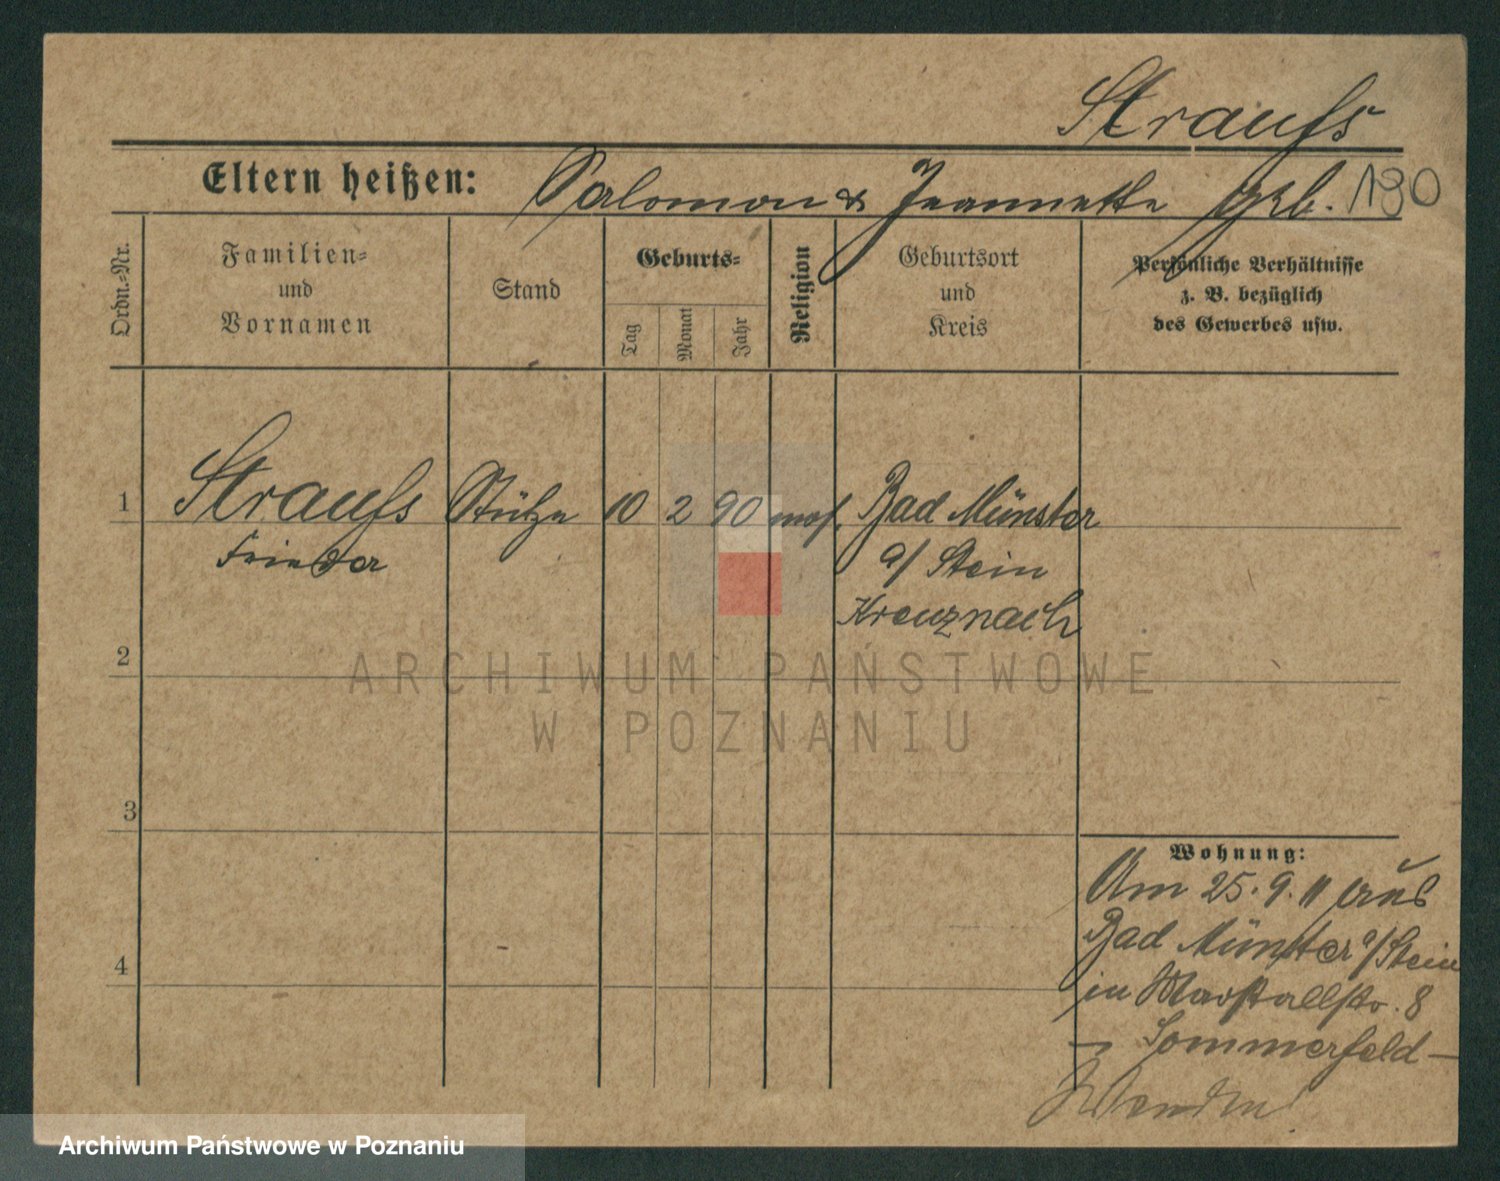 Straufs
Eltern heißen: Salomon & Jeannette geb. 130
Ordn.-Nr.
Familien- und Vornamen
Stand
Geburts-
Tag
Monat
Jahr
Religion
Geburtsort und Kreis
Persönliche Verhältnisse
z. B. bezüglich
des Gewerbes usw.
1 Straufs Stütze 10 2 90 mos. Bad Münster
a/ Stein
Kreuznach
2
3
4
Wohnung:
Am 25.9.11 aus
Bad Münster a/Stein
in Marstallstr. 8
— Sommerfeld —
ARCHIWUM PAŃSTWOWE
W POZNANIU
Archiwum Państwowe w Poznaniu